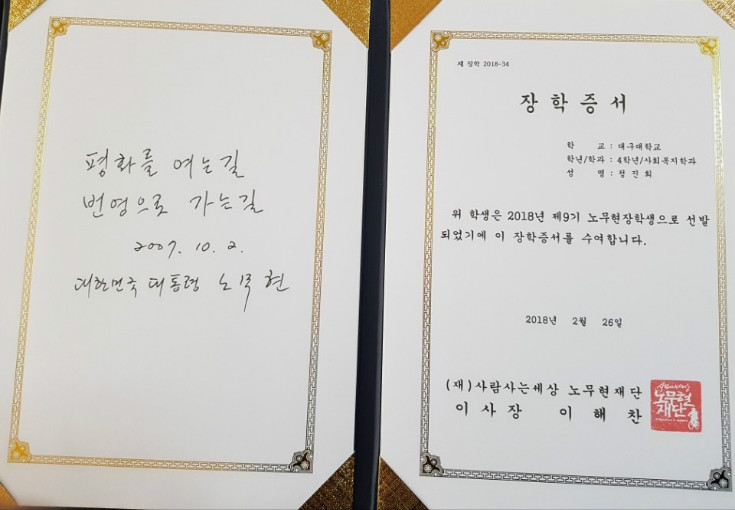 평화를 여는길
번영으로 가는길
2007. 10. 2.
대한민국 대통령 노무현
제 장학 2018-34
장학증서
학 교 : 대구대학교
학년/학과 : 4학년/사회복지학과
성 명 : 정진희
위 학생은 2018년 제9기 노무현장학생으로 선발
되었기에 이 장학증서를 수여합니다.
2018년 2월 26일
(재)사람사는세상 노무현재단
이 사 장 이 해 찬
사람사는세상
노무현
재단